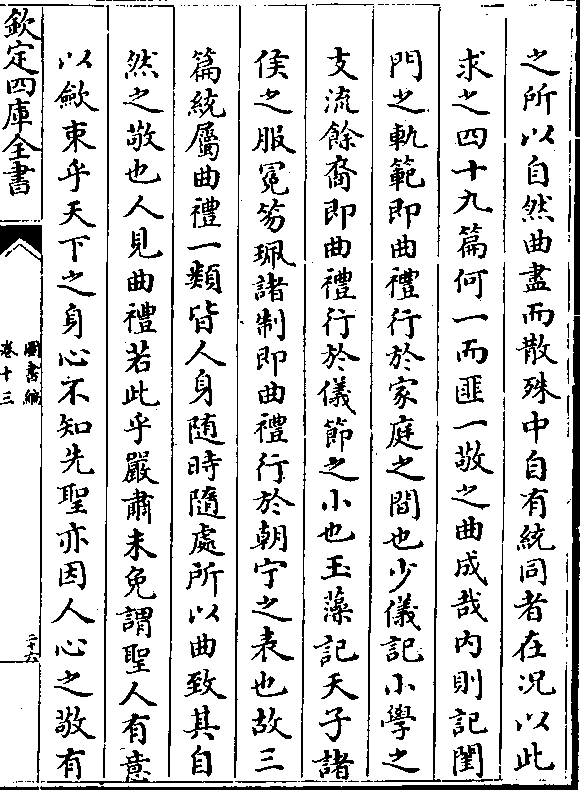 之所以自然曲盡而散殊中自有統同者在況以此
求之四十九篇何一而匪一敬之曲成哉内則記閨
門之軌範即曲禮行於家庭之間也少儀記小學之
支流餘裔即曲禮行於儀節之小也玉藻記天子諸
侯之服冕笏珮諸制即曲禮行於朝宁之表也故三
篇統屬曲禮一類皆人身随時隨處所以曲致其自
然之敬也人見曲禮若此乎嚴肅未免謂聖人有意
以斂束乎天下之身心不知先聖亦因人心之敬有
欽定四庫全書
圖書編
卷十三
二十六